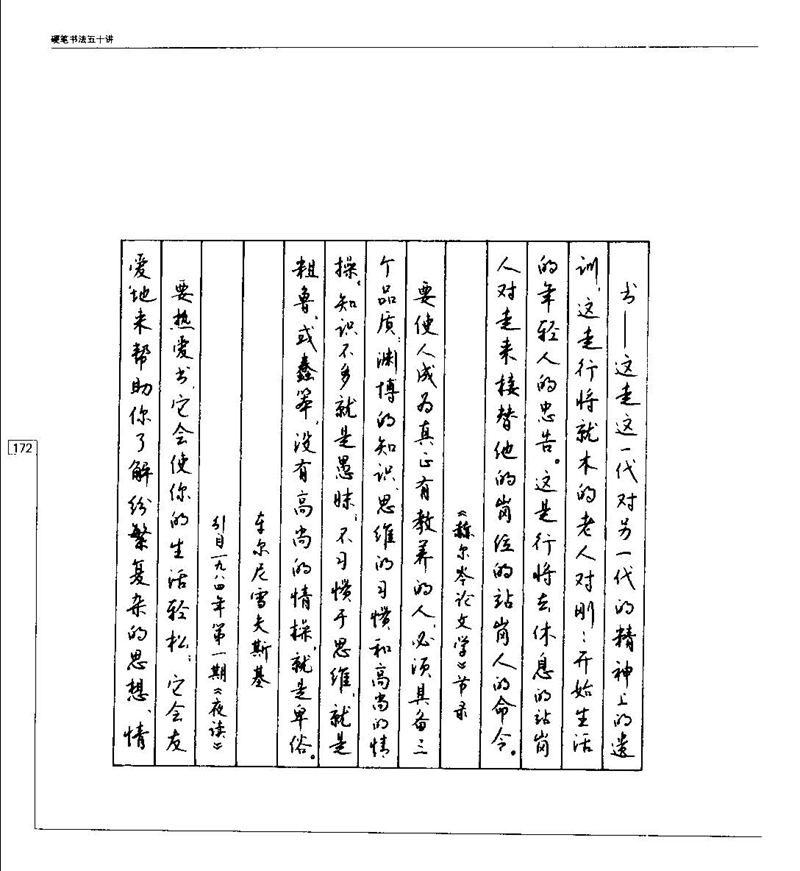 硬笔书法五十讲
书——这是这一代对另一代的精神上的遗
训,这是行将就木的老人对刚刚开始生活
的年轻人的忠告。这是行将去休息的站岗
人对走来接替他的岗位的站岗人的命令。
《赫尔岑论文学》节录
要使人成为真正有教养的人,必须具备三
个品质:渊博的知识、思维的习惯和高尚的情
操。知识不多就是愚昧;不习惯于思维,就是
粗鲁或蠢笨;没有高尚的情操,就是卑俗。
车尔尼雪夫斯基
引自一九八四年第一期《夜读》
要热爱书,它会使你的生活轻松;它会友
爱地来帮助你了解纷繁复杂的思想、情
172